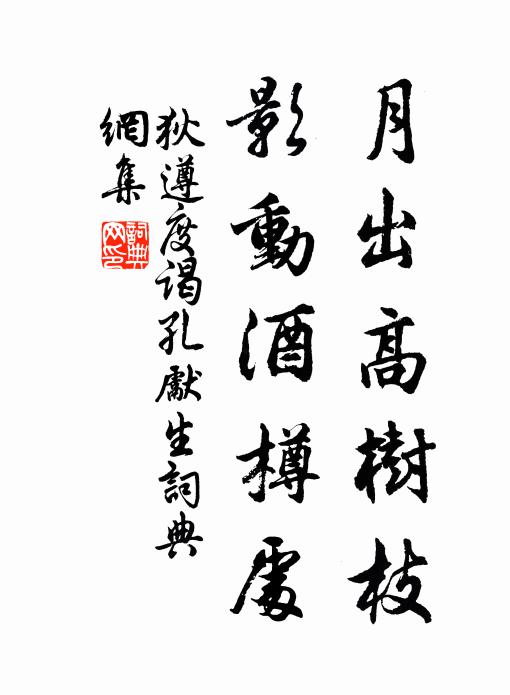 月出高樹枝
影動酒樽處
狄遵度謁孔獻生詞典
網集
詞典
网印